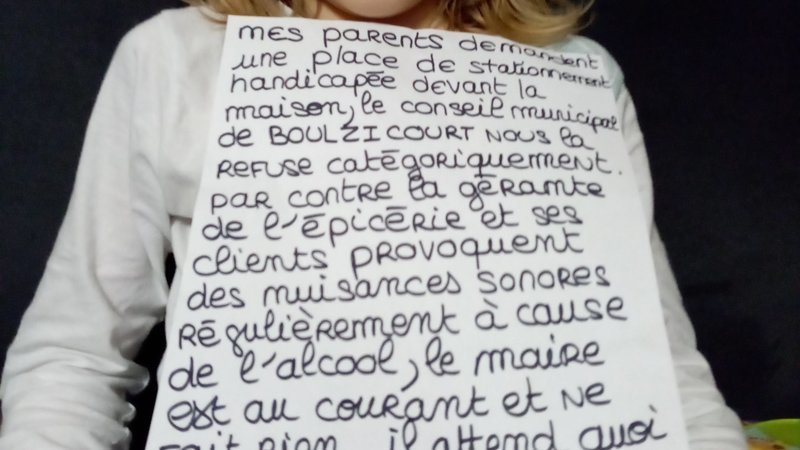 mes parents demandent
une place de stationnement
handicapée devant la
maison, le conseil municipal
de BOULZICOURT nous la
refuse catégoriquement.
par contre la gérante
de l'épicérie et ses
clients provoquent
des nuisances sonores
régulièrement à cause
de l'alcool, le maire
est au courant et ne
fait rien il attend quoi